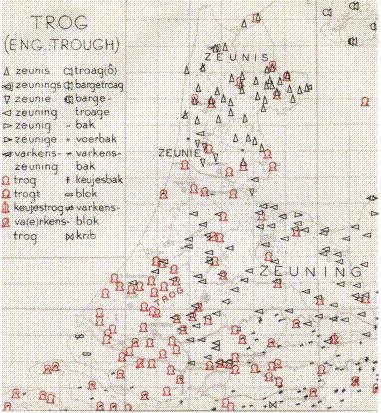 TROG
(ENG.:TROUGH)
zeunis troag(ô)
zeunings bargetroag
zeunie barge-
zeuning troage
zeunig - bak
zeunige voerbak
varkens- varkens-
zeuning bak
trog keujesbak
trogt blok
keujestrog varkens-
va(e)rkens- blok
trog krib
ZEUNIS
ZEUNIE
ZEUNING
TROG